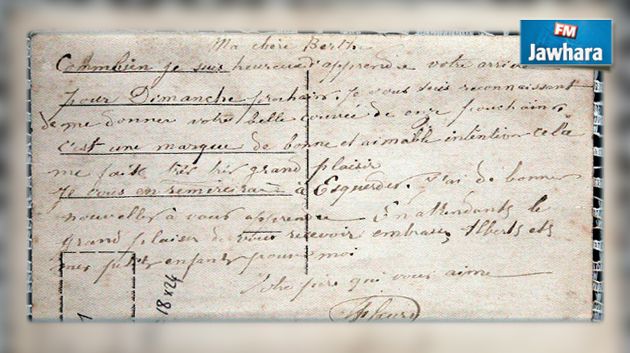 Ma chère Berthe
Commbien je suis heureux d'apprendre votre arrivé
pour Dimanche prochain. Je vous suis reconnaissant
de me donner votre belle couvée de onze
c'est une marque de bonne et aimable intention
me fait très très grand plaisir
Je vous en remercirai à Esquerdes. J'ai de bonne
nouvelles à vous apprendre En attendants le
grand plaisir de vous recevoir embrassez Alberts ets
les petits enfants pour moi
Votre père qui vous aime
18 x 24
FM
Jawhara